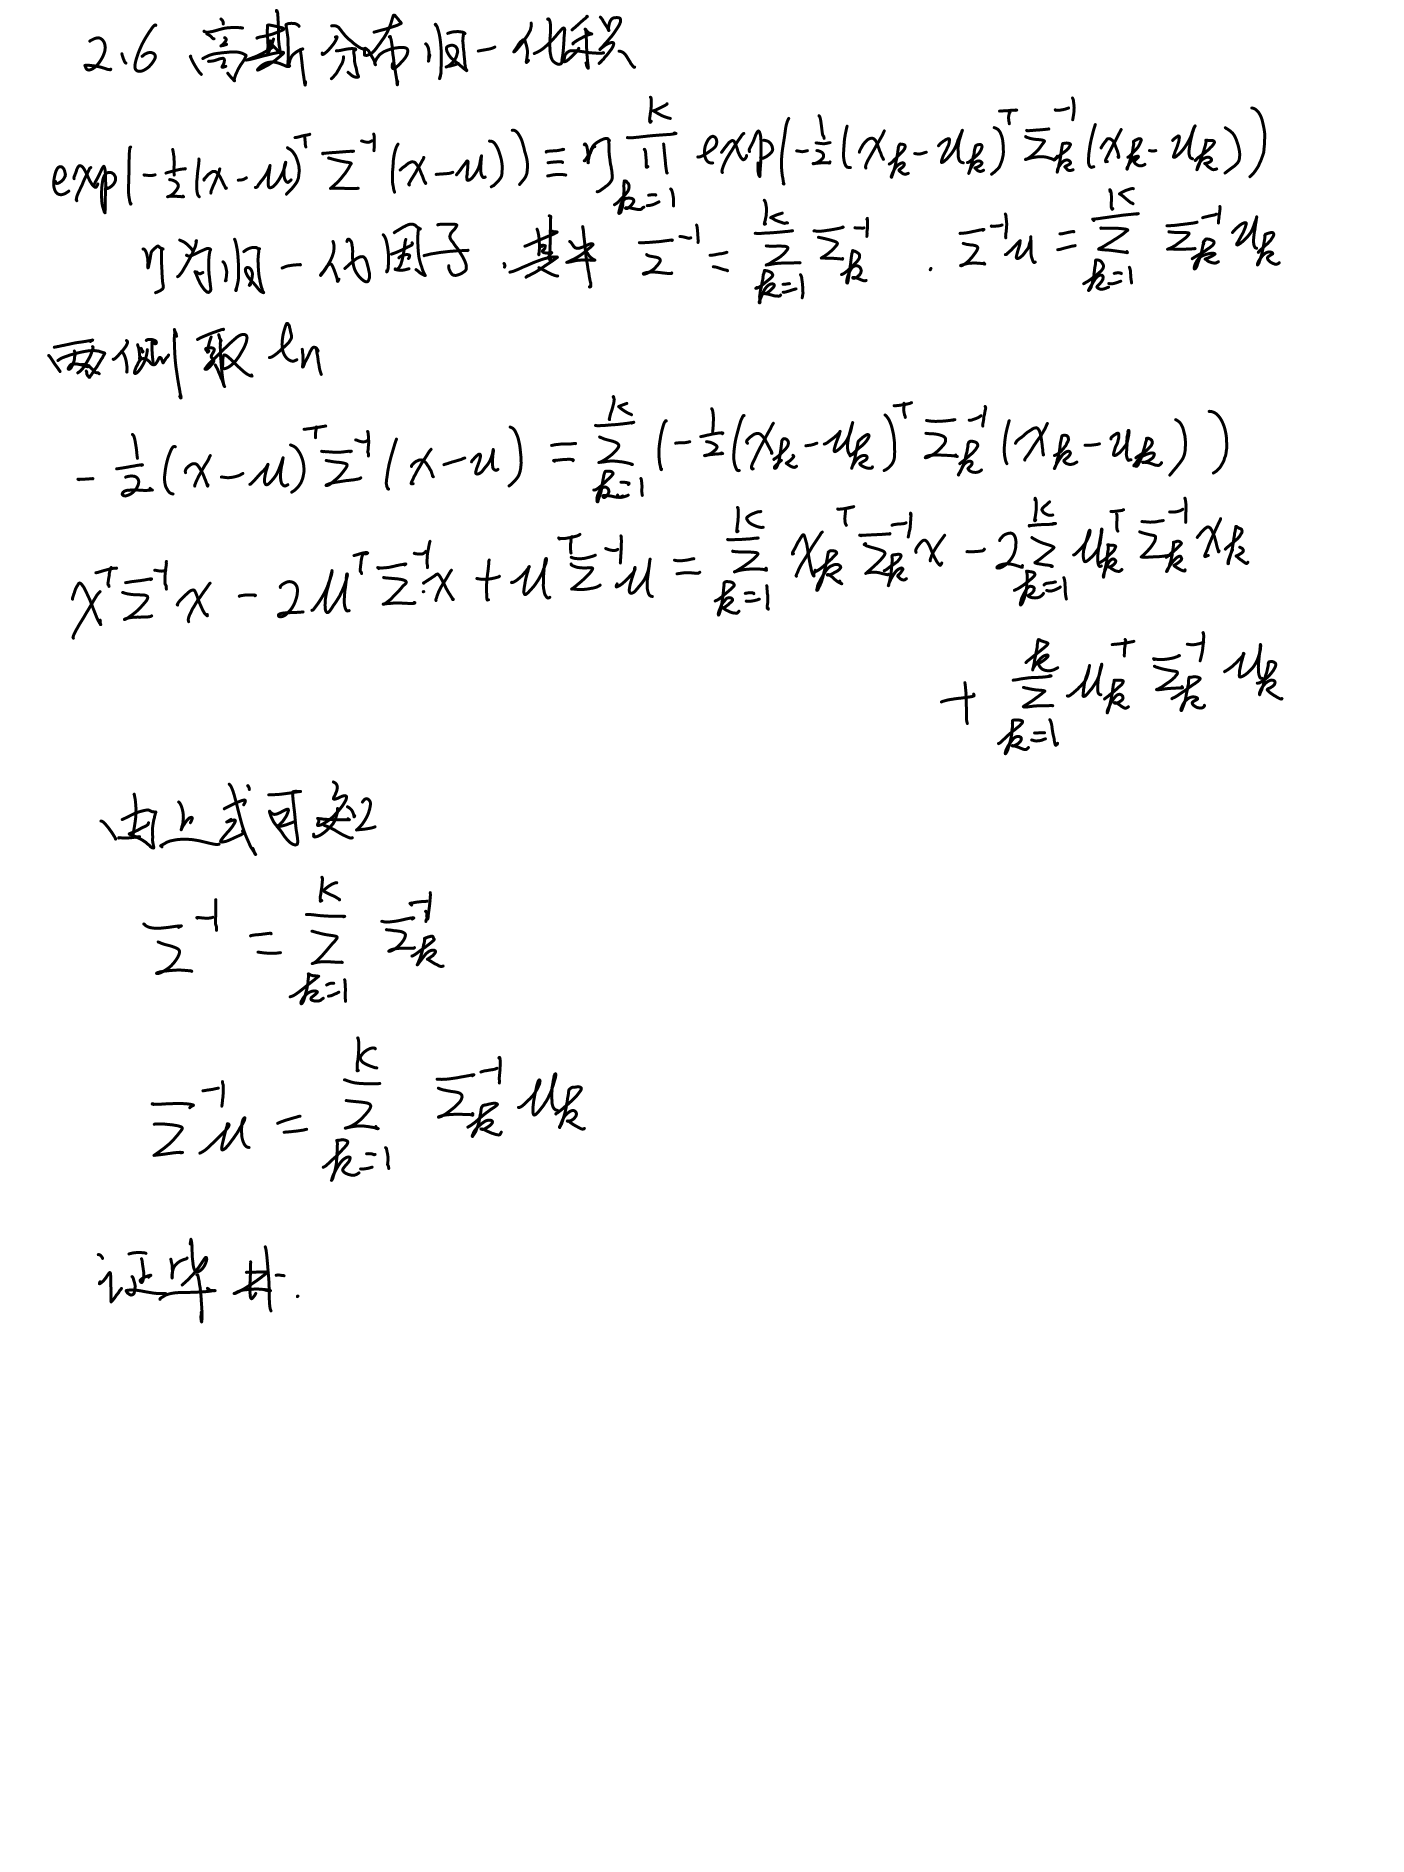 2.6 高斯分布归一化积
exp(-½(x-μ)ᵀΣ⁻¹(x-μ)) ≡ η ∏_{k=1}^{K} exp(-½(x_k-μ_k)ᵀΣ_k⁻¹(x_k-μ_k))
η为归一化因子.其中 Σ⁻¹ = ∑_{k=1}^{K} Σ_k⁻¹ . Σ⁻¹μ = ∑_{k=1}^{K} Σ_k⁻¹μ_k
两侧取 ln
-½(x-μ)ᵀΣ⁻¹(x-μ) = ∑_{k=1}^{K} (-½(x_k-μ_k)ᵀΣ_k⁻¹(x_k-μ_k))
xᵀΣ⁻¹x - 2μᵀΣ⁻¹x + μᵀΣ⁻¹μ = ∑_{k=1}^{K} x_kᵀΣ_k⁻¹x - 2∑_{k=1}^{K} μ_kᵀΣ_k⁻¹x_k
+ ∑_{k=1}^{k} μ_kᵀΣ_k⁻¹μ_k
由上式可知
Σ⁻¹ = ∑_{k=1}^{K} Σ_k⁻¹
Σ⁻¹μ = ∑_{k=1}^{K} Σ_k⁻¹μ_k
证毕 #.